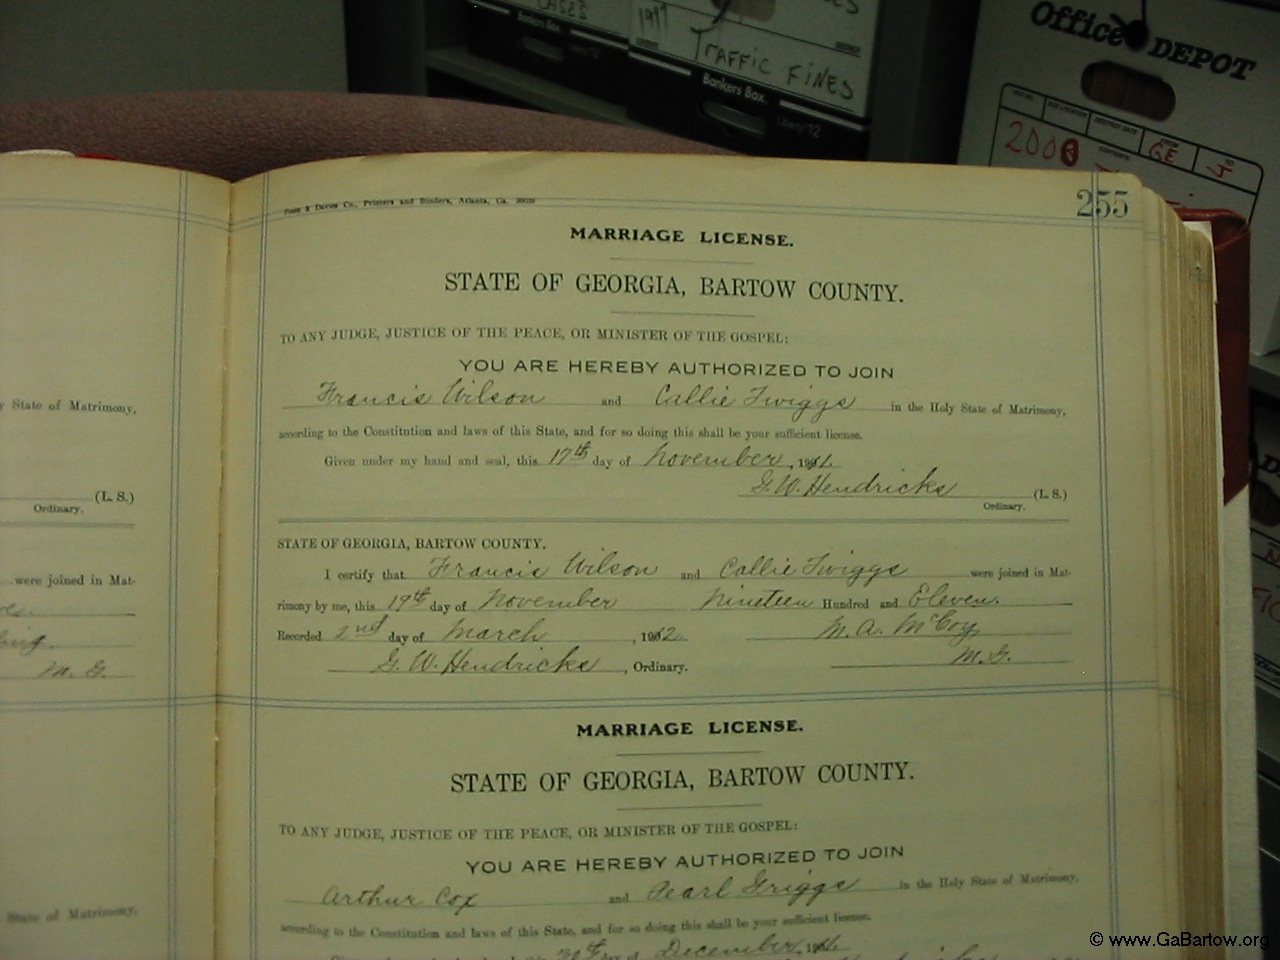 CASES
Bankers Box
1997
TRAFFIC FINES
Bankers Box
Liberty 12
Office DEPOT
BOX NO.
BOX LOCATION
DESTROY DATE
FROM
TO
2008
GE
J
CONTENTS
Foote & Davies Co., Printers and Binders, Atlanta, Ga.
255
MARRIAGE LICENSE.
STATE OF GEORGIA, BARTOW COUNTY.
TO ANY JUDGE, JUSTICE OF THE PEACE, OR MINISTER OF THE GOSPEL:
YOU ARE HEREBY AUTHORIZED TO JOIN
Francis Wilson and Callie Twiggs in the Holy State of Matrimony,
according to the Constitution and laws of this State, and for so doing this shall be your sufficient license.
Given under my hand and seal, this 17th day of November, 1911.
G. W. Hendricks (L. S.)
Ordinary.
STATE OF GEORGIA, BARTOW COUNTY.
I certify that Francis Wilson and Callie Twiggs were joined in Mat-
rimony by me, this 19th day of November Nineteen Hundred and Eleven.
Recorded 2nd day of March, 1912. M. A. McCoy
G. W. Hendricks, Ordinary. M. G.
MARRIAGE LICENSE.
STATE OF GEORGIA, BARTOW COUNTY.
TO ANY JUDGE, JUSTICE OF THE PEACE, OR MINISTER OF THE GOSPEL:
YOU ARE HEREBY AUTHORIZED TO JOIN
Arthur Cox and Pearl Griggs in the Holy State of Matrimony,
according to the Constitution and laws of this State, and for so doing this shall be your sufficient license.
day of December,
y State of Matrimony,
(L. S.)
Ordinary.
were joined in Mat-
M. G.
State of Matrimony,
© www.GaBartow.org